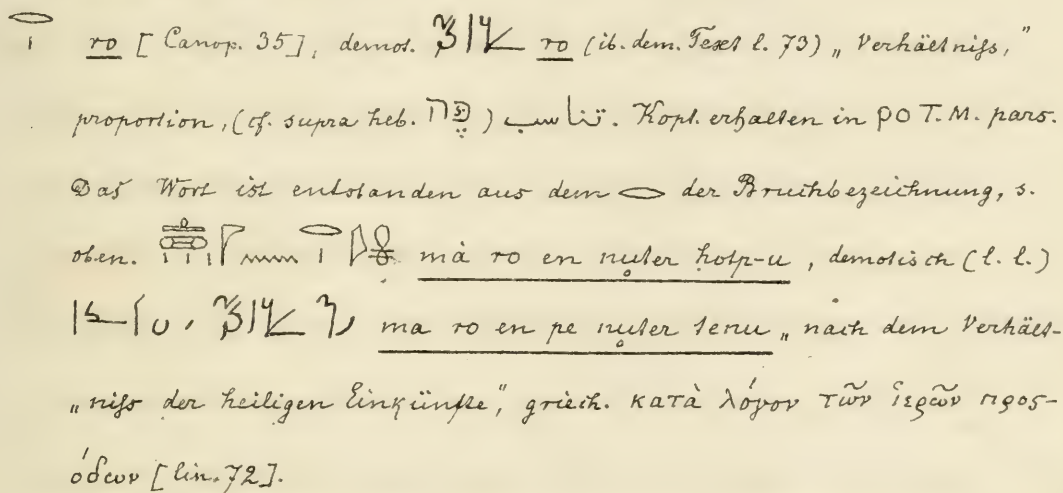 ro [Canop. 35], demot. ro (ib. dem. Text l. 73) „Verhältniſs,"
proportion, (cf. supra heb. פֶּה) تناسب. Kopt. erhalten in ⲣⲟ T. M. pars.
Das Wort ist entstanden aus dem 𓂋 der Bruchbezeichnung, s.
oben. mȧ ro en nu̥ter hotp-u, demotisch (l. l.)
ma ro en pe nu̥ter tenu „nach dem Verhält-
„niſs der heiligen Einkünfte", griech. κατὰ λόγον τῶν ἱερῶν προσ-
όδων [lin. 72].